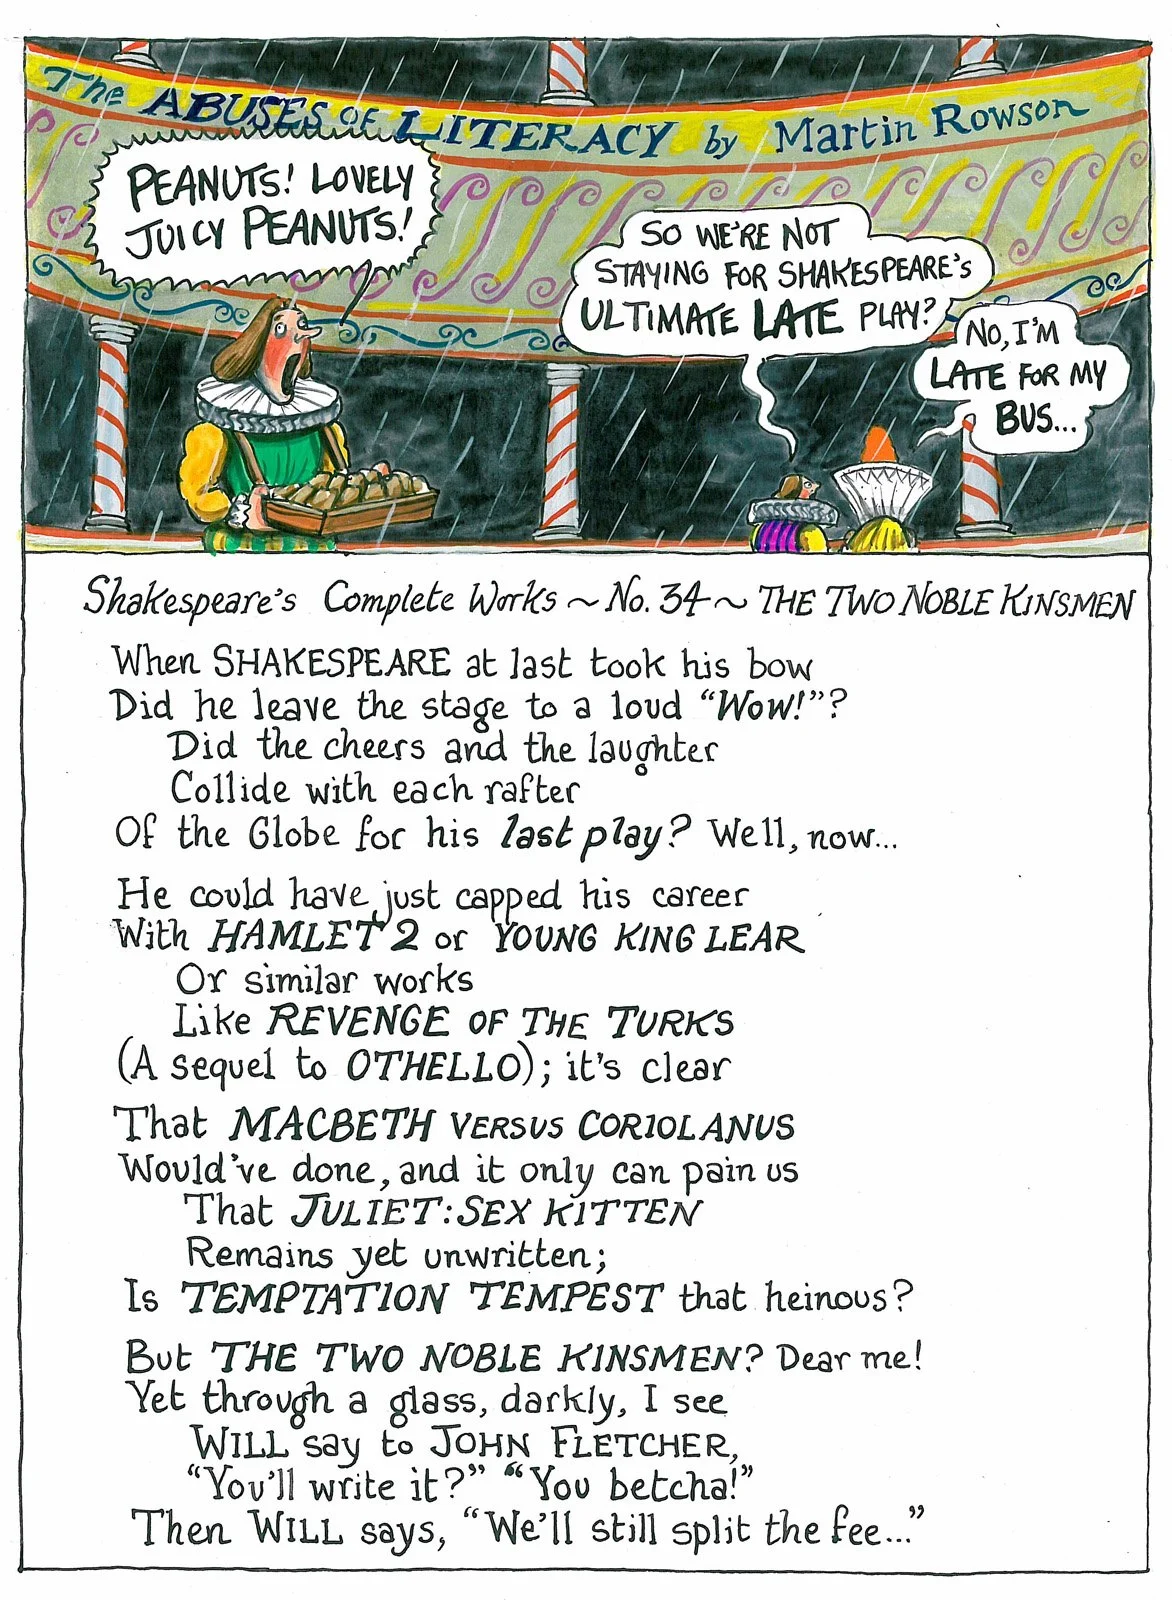 The ABUSES OF LITERACY by Martin Rowson
PEANUTS! LOVELY
JUICY PEANUTS!
SO WE'RE NOT
STAYING FOR SHAKESPEARE'S
ULTIMATE LATE PLAY?
NO, I'M
LATE FOR MY
BUS...
Shakespeare's Complete Works ~ No. 34 ~ THE TWO NOBLE KINSMEN
When SHAKESPEARE at last took his bow
Did he leave the stage to a loud "Wow!"?
Did the cheers and the laughter
Collide with each rafter
Of the Globe for his last play? Well, now...
He could have just capped his career
With HAMLET 2 or YOUNG KING LEAR
Or similar works
Like REVENGE OF THE TURKS
(A sequel to OTHELLO); it's clear
That MACBETH VERSUS CORIOLANUS
Would've done, and it only can pain us
That JULIET: SEX KITTEN
Remains yet unwritten;
Is TEMPTATION TEMPEST that heinous?
But THE TWO NOBLE KINSMEN? Dear me!
Yet through a glass, darkly, I see
WILL say to JOHN FLETCHER,
"You'll write it?" "You betcha!"
Then WILL says, "We'll still split the fee..."